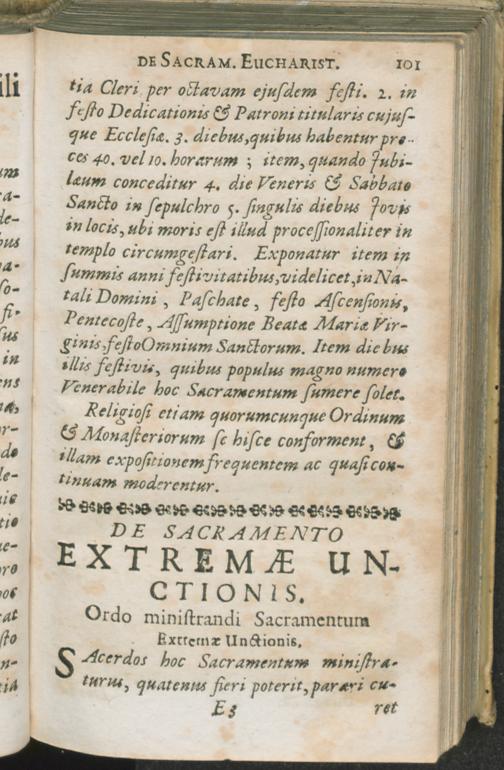 DE SACRAM. EUCHARIST. 101
tia Cleri per octavam ejuſdem feſti. 2. in
feſto Dedicationis & Patroni titularis cujuſ-
que Eccleſiæ. 3. diebus, quibus habentur pre-
ces 40. vel 10. horarum ; item, quando Jubi-
læum conceditur 4. die Veneris & Sabbato
Sancto in ſepulchro 5. ſingulis diebus Jovis
in locis, ubi moris eſt illud proceſſionaliter in
templo circumgeſtari. Exponatur item in
ſummis anni feſtivitatibus, videlicet, in Na-
tali Domini , Paſchate , feſto Aſcenſionis,
Pentecoſte, Aſſumptione Beatæ Mariæ Vir-
ginis, feſto Omnium Sanctorum. Item diebus
illis feſtivis, quibus populus magno numero
Venerabile hoc Sacramentum ſumere ſolet.
Religioſi etiam quorumcunque Ordinum
& Monaſteriorum ſe hiſce conforment, &
illam expoſitionem frequentem ac quaſi con-
tinuam moderentur.
DE SACRAMENTO
EXTREMÆ UN-
CTIONIS.
Ordo miniſtrandi Sacramentum
Extremæ Unctionis.
SAcerdos hoc Sacramentum miniſtra-
turus, quatenus fieri poterit, parari cu-
E3 ret